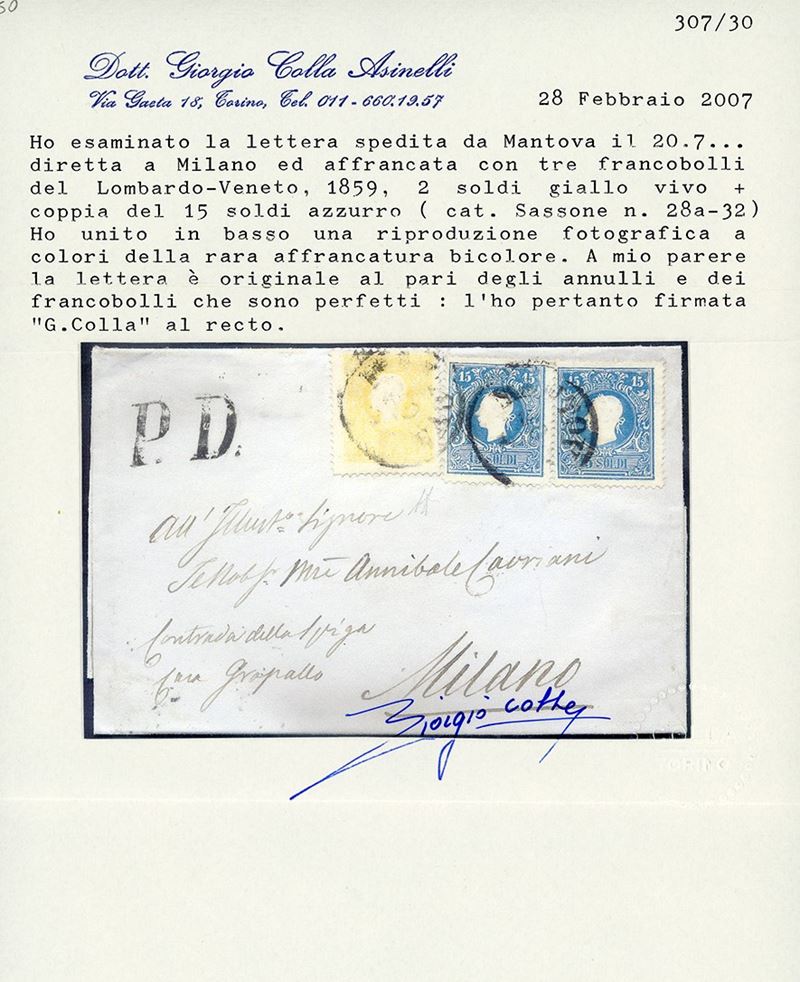 307/30
Dott. Giorgio Colla Asinelli
Via Gaeta 18, Torino, Tel. 011-660.19.57
28 Febbraio 2007
Ho esaminato la lettera spedita da Mantova il 20.7...
diretta a Milano ed affrancata con tre francobolli
del Lombardo-Veneto, 1859, 2 soldi giallo vivo +
coppia del 15 soldi azzurro ( cat. Sassone n. 28a-32)
Ho unito in basso una riproduzione fotografica a
colori della rara affrancatura bicolore. A mio parere
la lettera è originale al pari degli annulli e dei
francobolli che sono perfetti : l'ho pertanto firmata
"G.Colla" al recto.
P.D.
15 15 15 15
15 SOLDI 15 SOLDI
All' Signore
Annibale Cavriani
Contrada della Spiga
Casa
Milano
Giorgio Colla
TORINO